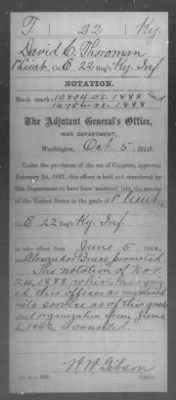 T 22 Ky.
David C. Thoroman
Lieut., Co. E, 22 Reg't Ky. Inf.
NOTATION.
Book mark 10804-VS-1888 and
The Adjutant General's Office,
WAR DEPARTMENT,
Washington, Oct 5-
Under the provisions of the act of Congress, approved
February 24, 1897, this officer is held and considered by
this Department to have been mustered into the service
of the United States in the grade of Lieut,
Co E 22 Reg't Ky. Inf.
to take effect from June 5, 186
Alexander Bruce promoted.
The notation of Nov.
24, 1888 which recognized
this officer as mustered
into service as of this grade
and organization from June
6, 1862 is canceled.